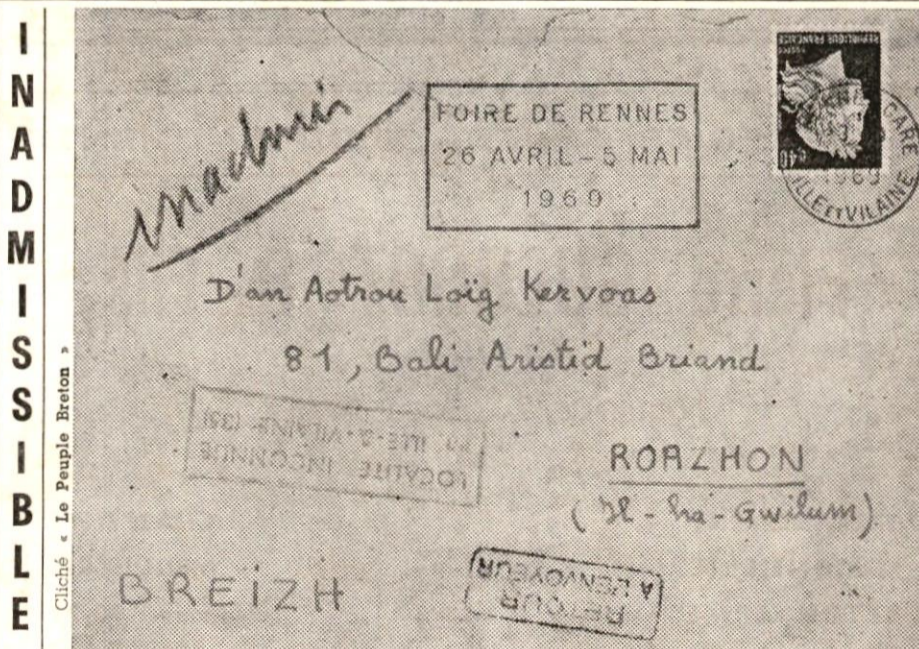 INADMISSIBLE
Cliché « Le Peuple Breton »
Inadmis
FOIRE DE RENNES
26 AVRIL - 5 MAI
1969
REPUBLIQUE FRANÇAISE
POSTES
0,40
GARE
1969
ILLE ET VILAINE
D'an Aotrou Loïg Kervoas
81, Bali Aristid Briand
LOCALITÉ INCONNUE
EN ILLE-&-VILAINE (35)
ROAZHON
(Il-ha-Gwilum)
BREIZH
RETOUR
A L'ENVOYEUR